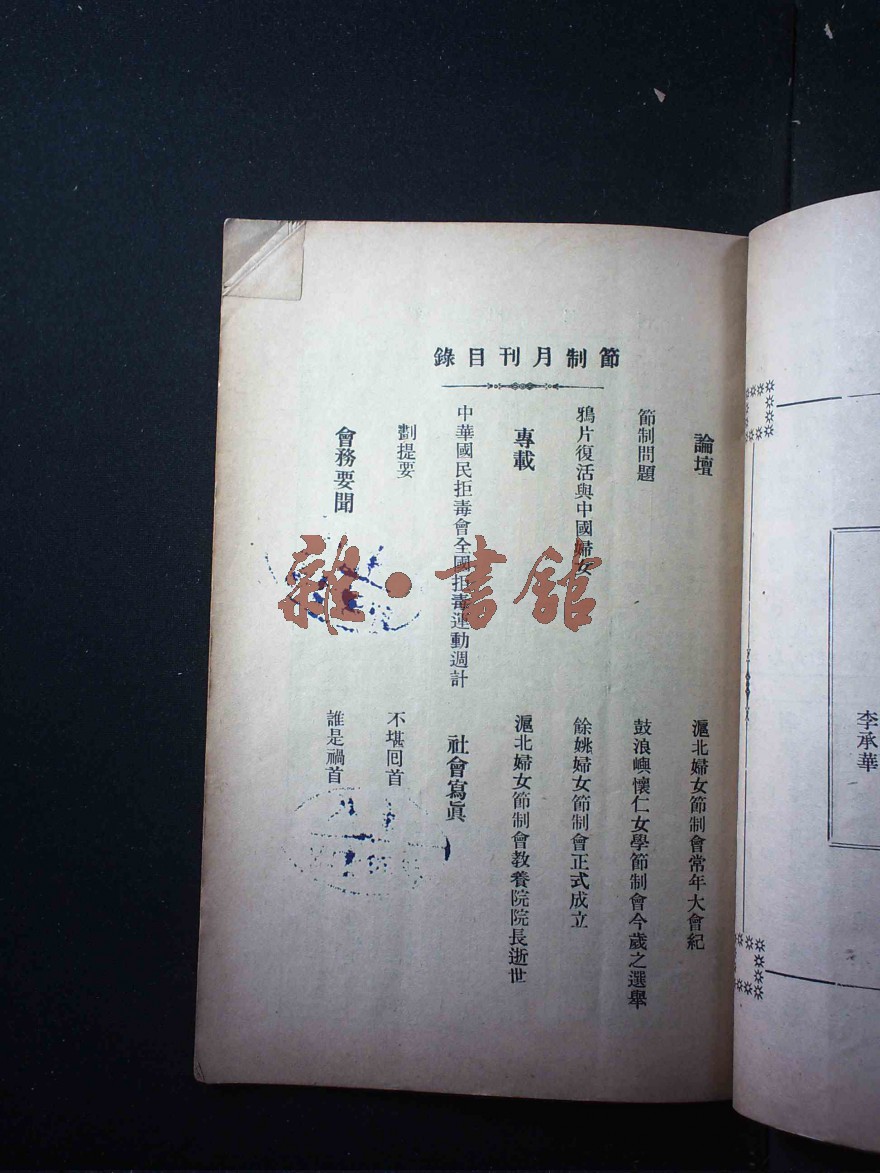 節制月刊目錄
論壇
節制問題
鴉片復活與中國婦女
專載
中華國民拒毒會全國拒毒運動週計
劃提要
會務要聞
滬北婦女節制會常年大會紀
鼓浪嶼懷仁女學節制會今歲之選舉
餘姚婦女節制會正式成立
滬北婦女節制會教養院院長逝世
社會寫眞
不堪囘首
誰是禍首
李承華
雜·書館